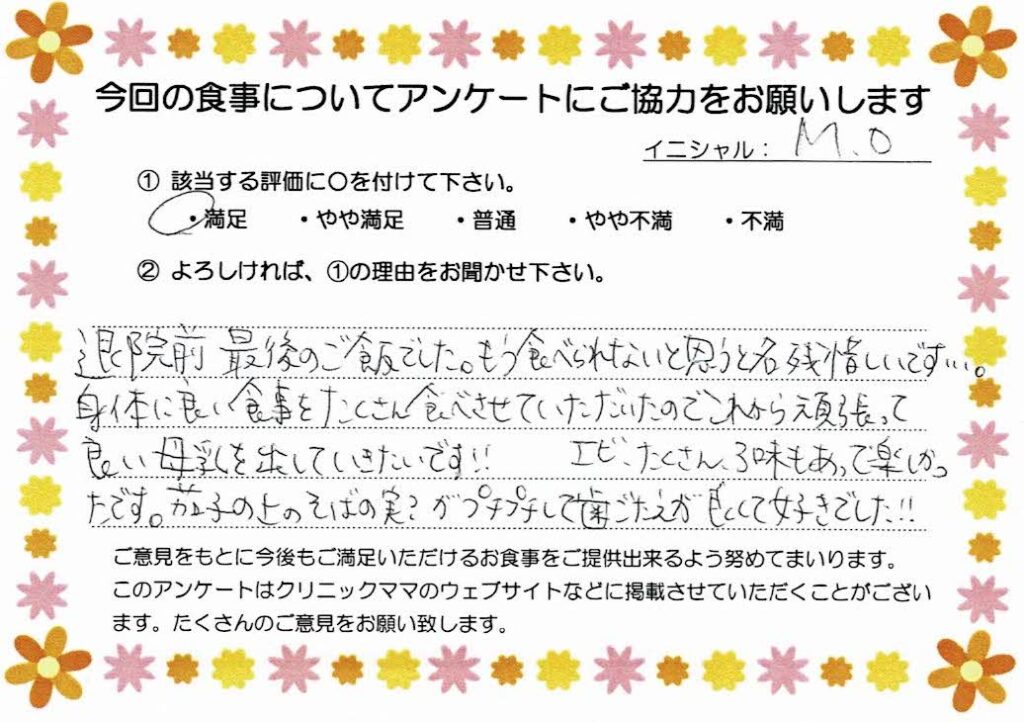 今回の食事についてアンケートにご協力をお願いします
イニシャル： M.O
① 該当する評価に〇を付けて下さい。
・満足 ・やや満足 ・普通 ・やや不満 ・不満
② よろしければ、①の理由をお聞かせ下さい。
退院前 最後のご飯でした。もう食べられないと思うと名残惜しいです…。
身体に良い食事をたくさん食べさせていただいたのでこれから頑張って
良い母乳を出していきたいです!! エビ、たくさん、3味もあって楽しかっ
たです。茄子の上のそばの実?がプチプチして歯ごたえが良くて好きでした!!
ご意見をもとに今後もご満足いただけるお食事をご提供出来るよう努めてまいります。
このアンケートはクリニックママのウェブサイトなどに掲載させていただくことがござい
ます。たくさんのご意見をお願い致します。